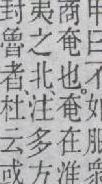 甲曰不如服衆
商奄也奄在淮
夷之北注多方
封魯者杜云或